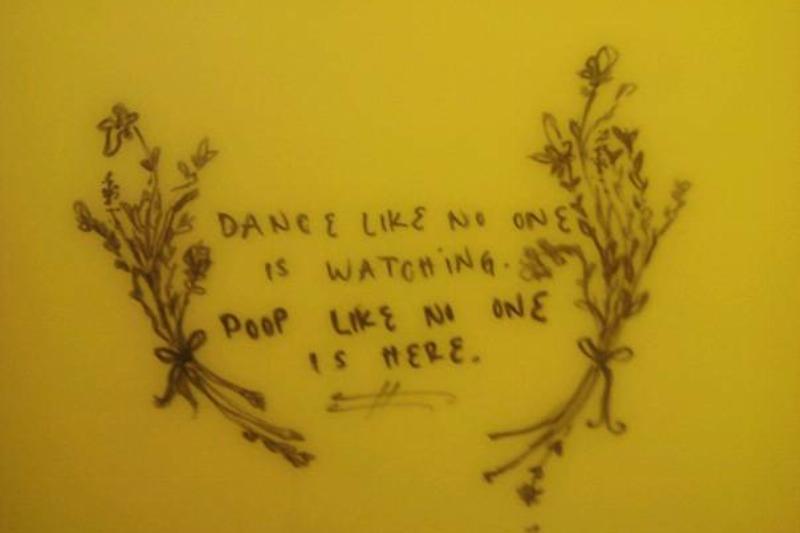 DANCE LIKE NO ONE
IS WATCHING.
POOP LIKE NO ONE
IS HERE.